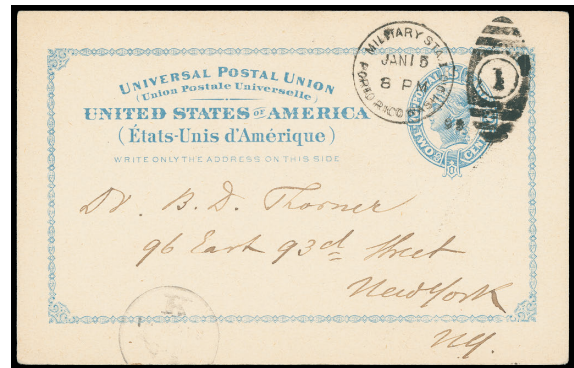 UNIVERSAL POSTAL UNION
(Union Postale Universelle)
UNITED STATES OF AMERICA
(États-Unis d'Amérique)
WRITE ONLY THE ADDRESS ON THIS SIDE
MILITARY STA.
JAN 15
8 PM
PORTO RICO
1
TWO CENTS
Dr. B. D.
96 East 93d Street
New York
NY.